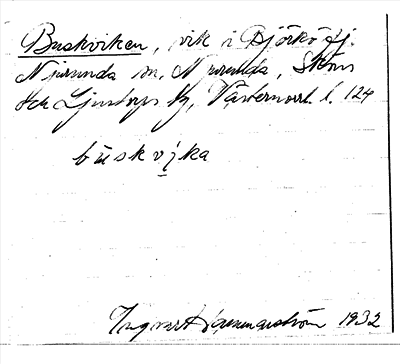 Buskviken, vik i Björkö fj.
Njurunda sn, Njurunda, Sköns
och Ljustorps tg, Västernorrl. l. 124
buskvika
Ingvar Hammarström 1932